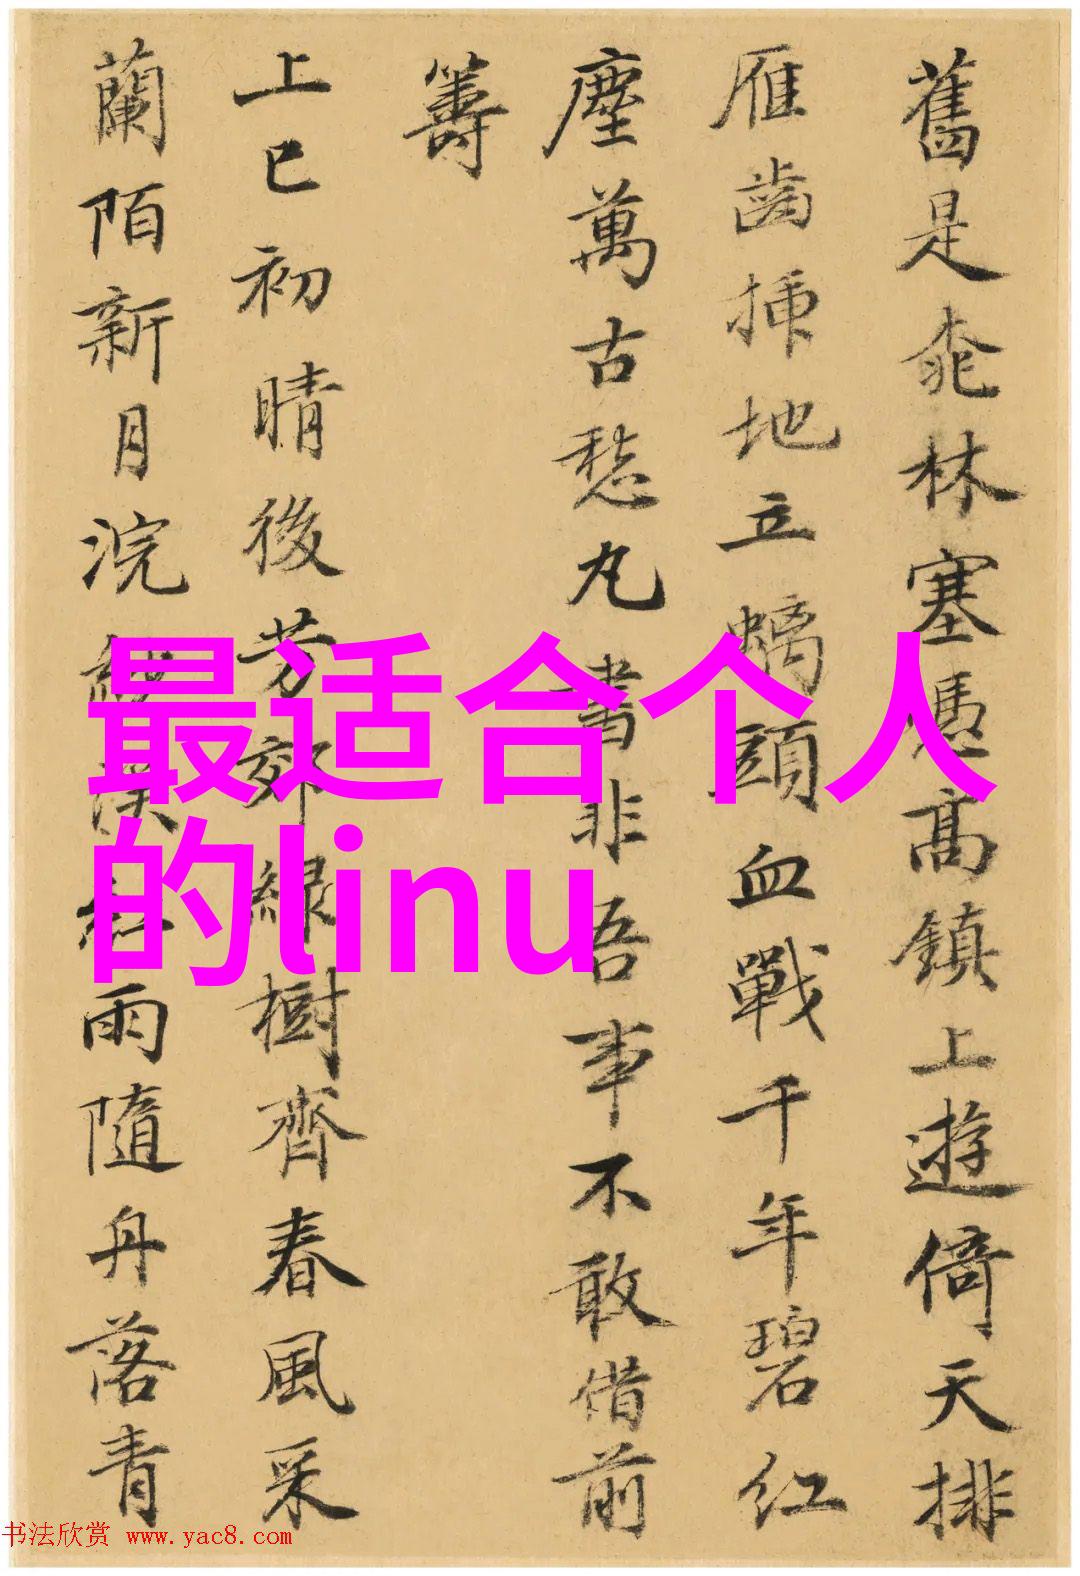 舊是桃林塞憑高鎮上遊倚天排
雁齒插地立螭頭血戰千年碧紅
塵萬古愁丸書非吾事不敢借前
籌
上巳初晴後芳郊綠樹齊春風采
蘭陌新月浣紗溪紅雨隨舟落青
最适合个人
的linu
书法欣赏 www.yac8.com